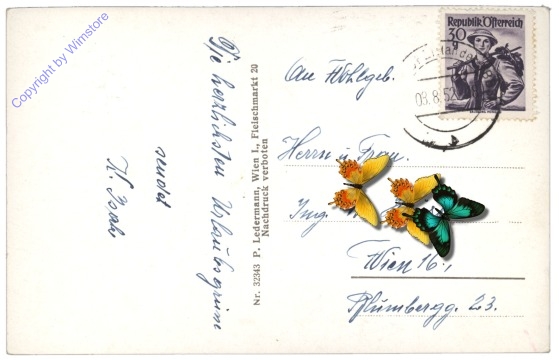 Copyright by Wimstore
Die herzlichsten Urlaubsgrüsse
sendet
Nr. 32343 P. Ledermann, Wien I., Fleischmarkt 20
Nachdruck verboten
Republik Österreich
30
g
03.8.52
An Wohlgeb.
Herrn u. Frau
Ing.
Wien 16.,
Plumbergg. 23.